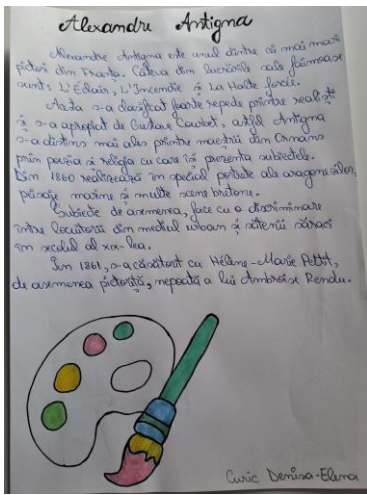 Alexandre Antigna
Alexandre Antigna este unul dintre cei mai mari
pictori din Franta. Câteva din lucrările sale faimoase
sunt: L'Éclair, L'Incendie și La Halte forcée.
Acesta s-a clasificat foarte repede printre realiști
și s-a apropiat de Gustave Courbet, astfel Antigna
s-a distins mai ales printre maestrii din Ornans
prin poezia și religia cu care își prezenta subiectele.
Din 1860 realizează în special portrete ale aragonezilor,
peisaje marine și multe scene bretone.
Subiecte de asemenea, face cu o discriminare
între locuitorii din mediul urban și sătenii săraci
în secolul al XIX-lea.
În 1861, s-a căsătorit cu Hélène-Marie Pettit,
de asemenea pictoriță, nepoată a lui Ambroise Rendu.
Curic Denisa-Elena